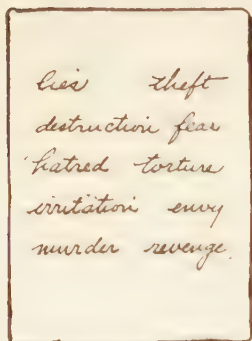 lies theft
destruction fear
hatred torture
irritation envy
murder revenge.